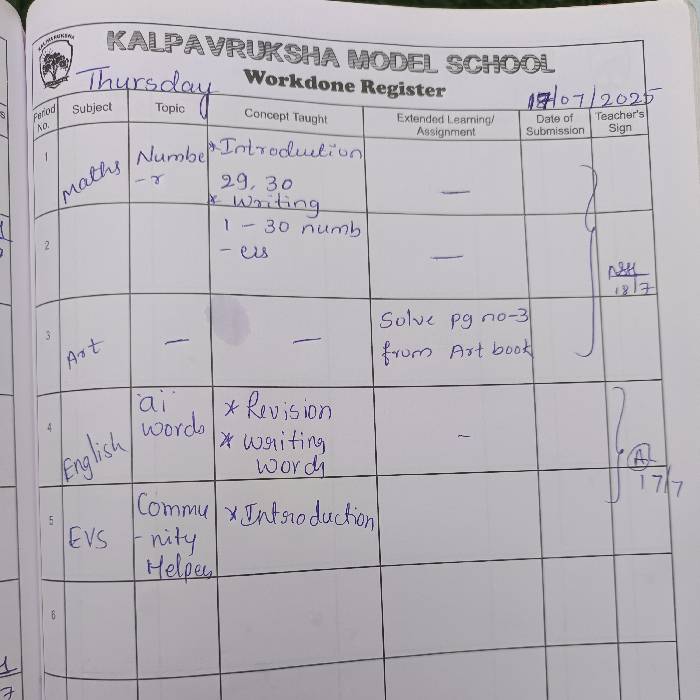 KALPAVRUKSHA
KALPAVRUKSHA MODEL SCHOOL
Thursday Workdone Register 17/07/2025
Period No. Subject Topic Concept Taught Extended Learning/ Assignment Date of Submission Teacher's Sign
1 Maths Numbe * Introduction
-r 29, 30 —
* Writing
2 1 - 30 numb
- ers —
18/7
3 Art — — Solve pg no-3
from Art book
4 English ai * Revision
words * writing –
words
17/7
5 EVS Commu * Introduction
-nity
Helpers
6